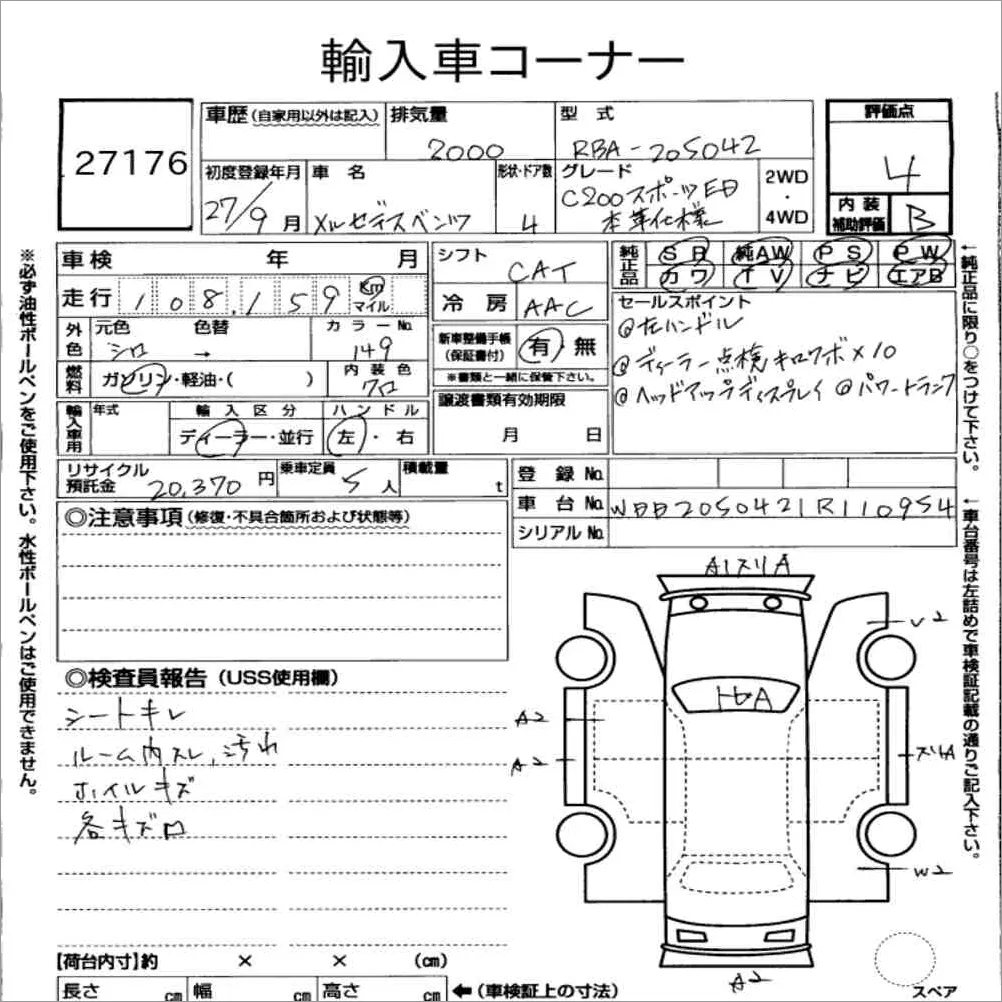 輸入車コーナー
27176
車歴(自家用以外は記入)
排気量
2000
型式
RBA-205042
評価点
4
初度登録年月
27/9月
車名
メルセデスベンツ
形状・ドア数
4
グレード
C200スポーツED
本革仕様
2WD
・
4WD
内装
補助評価
B
車検 年 月
シフト
CAT
純正品
SR 純AW PS PW
カワ TV ナビ エアB
走行 108,159 Km
マイル
冷房
AAC
セールスポイント
@左ハンドル
@ディーラー点検キロクボ×10
@ヘッドアップディスプレイ @パワートランク
外色
元色 色替
シロ →
カラーNo.
149
新車整備手帳
(保証書付)
有 無
※書類と一緒に保管下さい。
燃料
ガソリン・軽油・( )
内装色
クロ
輸入車用
年式
輸入区分
ディーラー・並行
ハンドル
左・右
譲渡書類有効期限
月 日
リサイクル
預託金
20,370円
乗車定員
5人
積載量
t
登録No.
車台No.
WDD2050421R110954
シリアルNo.
◎注意事項(修復・不具合箇所および状態等)
◎検査員報告(USS使用欄)
シートキレ
ルーム内スレ、汚れ
ホイルキズ
各キズロ
A1スリA
U2
トビA
A2
A2
スリA
W2
A2
スペア
【荷台内寸】約 × × (cm)
長さ cm 幅 cm 高さ cm ←(車検証上の寸法)
※必ず油性ボールペンをご使用下さい。水性ボールペンはご使用できません。
←純正品に限り○をつけて下さい。
←車台番号は左詰めで車検証記載の通りご記入下さい。